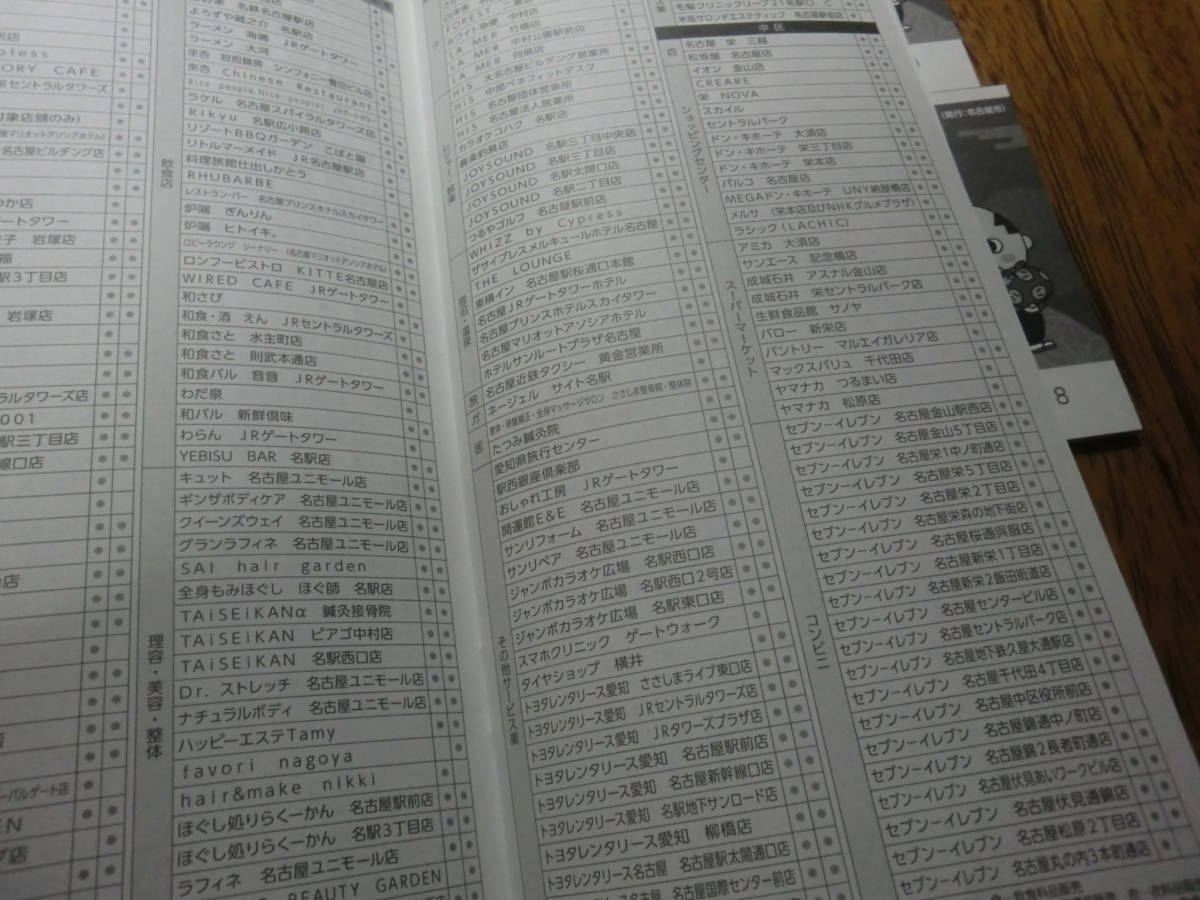 ORY CAFE
ＪＲセントラルタワーズ
象店舗のみ)
名古屋ビルヂング店
か店
ートタワー
岩塚店
福
駅3丁目店
岩塚店
ラルタワーズ店
001
駅三丁目店
線口店
飲食店
名鉄名古屋駅店
よろずや蔵之介 名駅店
ラーメン 海鳴 JRゲートタワー
ラーメン 大河
来杏 Chinese Restaurant
ラケル 名古屋スパイラルタワーズ店
Rikyu 名駅広小路店
リゾートBBQガーデン こばと園
リトルマーメイド JR名古屋駅店
料理旅館仕出しかとう
RHUBARBE
レストラン・バー 名古屋プリンスホテルスカイタワー
炉端 ぎんりん
炉端 ヒトイキ。
ロビーラウンジ シーナリー (名古屋マリオットアソシアホテル)
ロンフービストロ KITTE名古屋店
WIRED CAFE JRゲートタワー
和さび
和食・酒 えん JRセントラルタワーズ
和食さと 水主町店
和食さと 則武本通店
和食バル 音音 JRゲートタワー
わだ泉
和バル 新鮮倶味
わらん JRゲートタワー
YEBISU BAR 名駅店
理容・美容・整体
キュット 名古屋ユニモール店
ギンザボディケア 名古屋ユニモール店
クイーンズウェイ 名古屋ユニモール店
グランラフィネ 名古屋ユニモール店
SAI hair garden
全身もみほぐし ほぐ師 名駅店
TAiSEiKANα 鍼灸接骨院
TAiSEiKAN ピアゴ中村店
TAiSEiKAN 名駅西口店
Dr.ストレッチ 名古屋ユニモール店
ナチュラルボディ 名古屋ユニモール店
ハッピーエステTamy
favori nagoya
hair&make nikki
ほぐし処りらくーかん 名古屋駅前店
ほぐし処りらくーかん 名駅3丁目店
ラフィネ 名古屋ユニモール店
BEAUTY GARDEN
レジャー・娯楽
LA MER 竹橋店
LA MER 中村公園駅前店
LA MER
HIS 大名古屋ビルヂング営業所
HIS 中部ベネフィットデスク
HIS 名古屋団体営業所
HIS 名古屋法人営業所
カラオケコハク 名駅店
喜楽釣具店
JOYSOUND 名駅三丁目中央店
JOYSOUND 名駅三丁目店
JOYSOUND 名駅太閤口店
JOYSOUND 名駅二丁目店
つるやゴルフ 名古屋駅前店
WHIZZ by Cypress
宿泊・温泉
ザサイプレスメルキュールホテル名古屋
THE LOUNGE
東横イン 名古屋駅桜通口本館
名古屋JRゲートタワーホテル
名古屋プリンスホテルスカイタワー
名古屋マリオットアソシアホテル
ホテルサンルートプラザ名古屋
旅
名古屋近鉄タクシー 黄金営業所
ガ
ネージェル サイト名駅
医
整体・骨盤矯正・全身マッサージサロン ささしま整骨院・整体院
たつみ鍼灸院
その他サービス業
愛知県旅行センター
駅西銀座倶楽部
おしゃれ工房 JRゲートタワー
開運館E&E 名古屋ユニモール店
サンリフォーム 名古屋ユニモール店
サンリペア 名古屋ユニモール店
ジャンボカラオケ広場 名駅西口店
ジャンボカラオケ広場 名駅西口2号店
ジャンボカラオケ広場 名駅東口店
スマホクリニック ゲートウォーク
タイヤショップ 横井
トヨタレンタリース愛知 ささしまライブ東口店
トヨタレンタリース愛知 JRセントラルタワーズ店
トヨタレンタリース愛知 JRタワーズプラザ店
トヨタレンタリース愛知 名古屋駅前店
トヨタレンタリース愛知 名古屋新幹線口店
トヨタレンタリース愛知 名駅地下サンロード店
トヨタレンタリース愛知 柳橋店
トヨタレンタリース名古屋 名古屋駅太閤通口店
トヨタレンタリース名古屋 名古屋国際センター前店
毛髪クリニックリーブ21名駅
米坂サロンドエステティック 名古屋駅前店
中区
百
名古屋 栄 三越
松坂屋 名古屋店
ショッピングセンター
イオン 金山店
CREARE
栄 NOVA
スカイル
セントラルパーク
ドン・キホーテ 大須店
ドン・キホーテ 栄三丁目店
ドン・キホーテ 栄本店
パルコ 名古屋店
MEGAドン・キホーテ UNY納屋橋店
メルサ (栄本店及びNHKグルメプラザ)
ラシック(LACHIC)
スーパーマーケット
アミカ 大須店
サンエース 記念橋店
成城石井 アスナル金山店
成城石井 栄セントラルパーク店
生鮮食品館 サノヤ
バロー 新栄店
パントリー マルエイガレリア店
マックスバリュ 千代田店
ヤマナカ つるまい店
ヤマナカ 松原店
コンビニ
セブン－イレブン 名古屋金山駅西店
セブン－イレブン 名古屋金山5丁目店
セブン－イレブン 名古屋栄1中ノ町通店
セブン－イレブン 名古屋栄5丁目店
セブン－イレブン 名古屋栄2丁目店
セブン－イレブン 名古屋栄森の地下街店
セブン－イレブン 名古屋桜通呉服店
セブン－イレブン 名古屋新栄1丁目店
セブン－イレブン 名古屋新栄2飯田街道店
セブン－イレブン 名古屋センタービル店
セブン－イレブン 名古屋セントラルパーク店
セブン－イレブン 名古屋地下鉄久屋大通駅店
セブン－イレブン 名古屋千代田4丁目店
セブン－イレブン 名古屋中区役所前店
セブン－イレブン 名古屋錦通中ノ町店
セブン－イレブン 名古屋錦2長者町通店
セブン－イレブン 名古屋伏見あいワークビル店
セブン－イレブン 名古屋伏見通錦店
セブン－イレブン 名古屋松原2丁目店
セブン－イレブン 名古屋丸の内3本町通店
飲食料品販売
(発行:名古屋市)
8